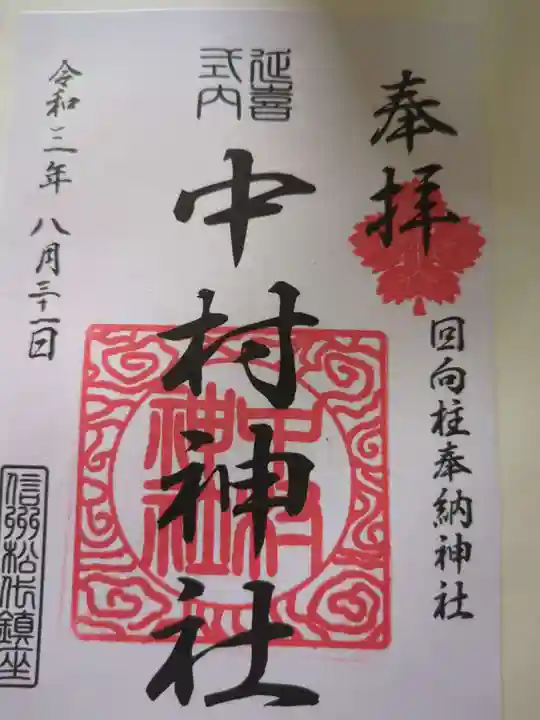 奉拝
回向柱奉納神社
延喜
式内
中村神社
中村
神社
令和三年八月三十一日
信州松代鎮座